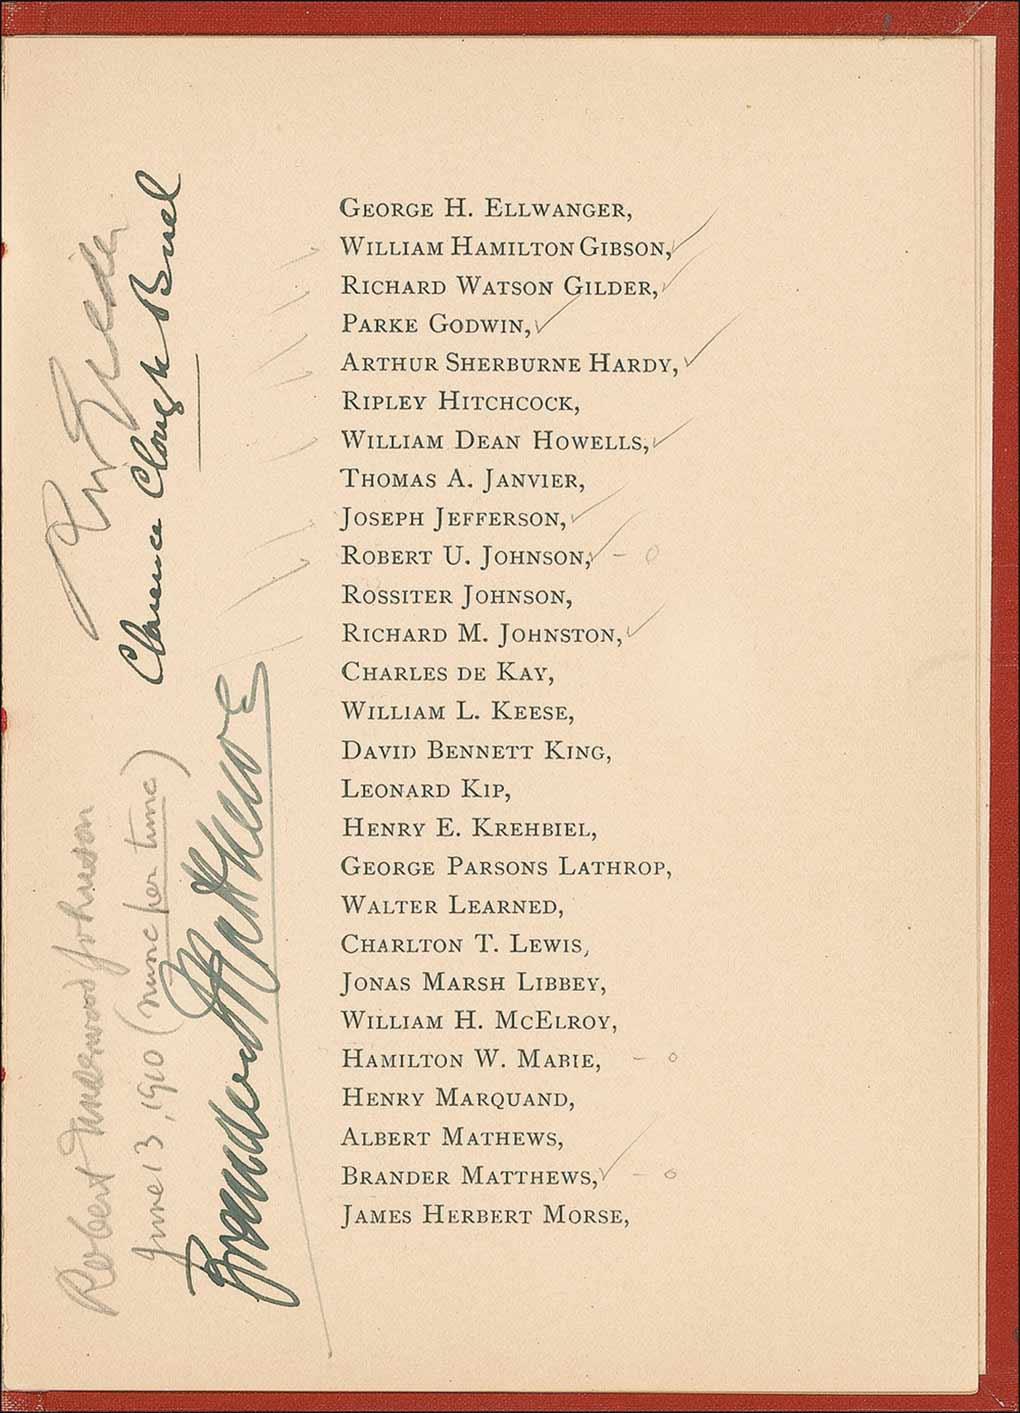 GEORGE H. ELLWANGER,
WILLIAM HAMILTON GIBSON,
RICHARD WATSON GILDER,
PARKE GODWIN,
ARTHUR SHERBURNE HARDY,
RIPLEY HITCHCOCK,
WILLIAM DEAN HOWELLS,
THOMAS A. JANVIER,
JOSEPH JEFFERSON,
ROBERT U. JOHNSON, – o
ROSSITER JOHNSON,
RICHARD M. JOHNSTON,
CHARLES DE KAY,
WILLIAM L. KEESE,
DAVID BENNETT KING,
LEONARD KIP,
HENRY E. KREHBIEL,
GEORGE PARSONS LATHROP,
WALTER LEARNED,
CHARLTON T. LEWIS,
JONAS MARSH LIBBEY,
WILLIAM H. MCELROY,
HAMILTON W. MABIE, – o
HENRY MARQUAND,
ALBERT MATHEWS,
BRANDER MATTHEWS, – o
JAMES HERBERT MORSE,
R W Gilder
Clarence Clough Buel
Robert Underwood Johnson
June 13, 1910 (nunc per tunc)
Brander Matthews